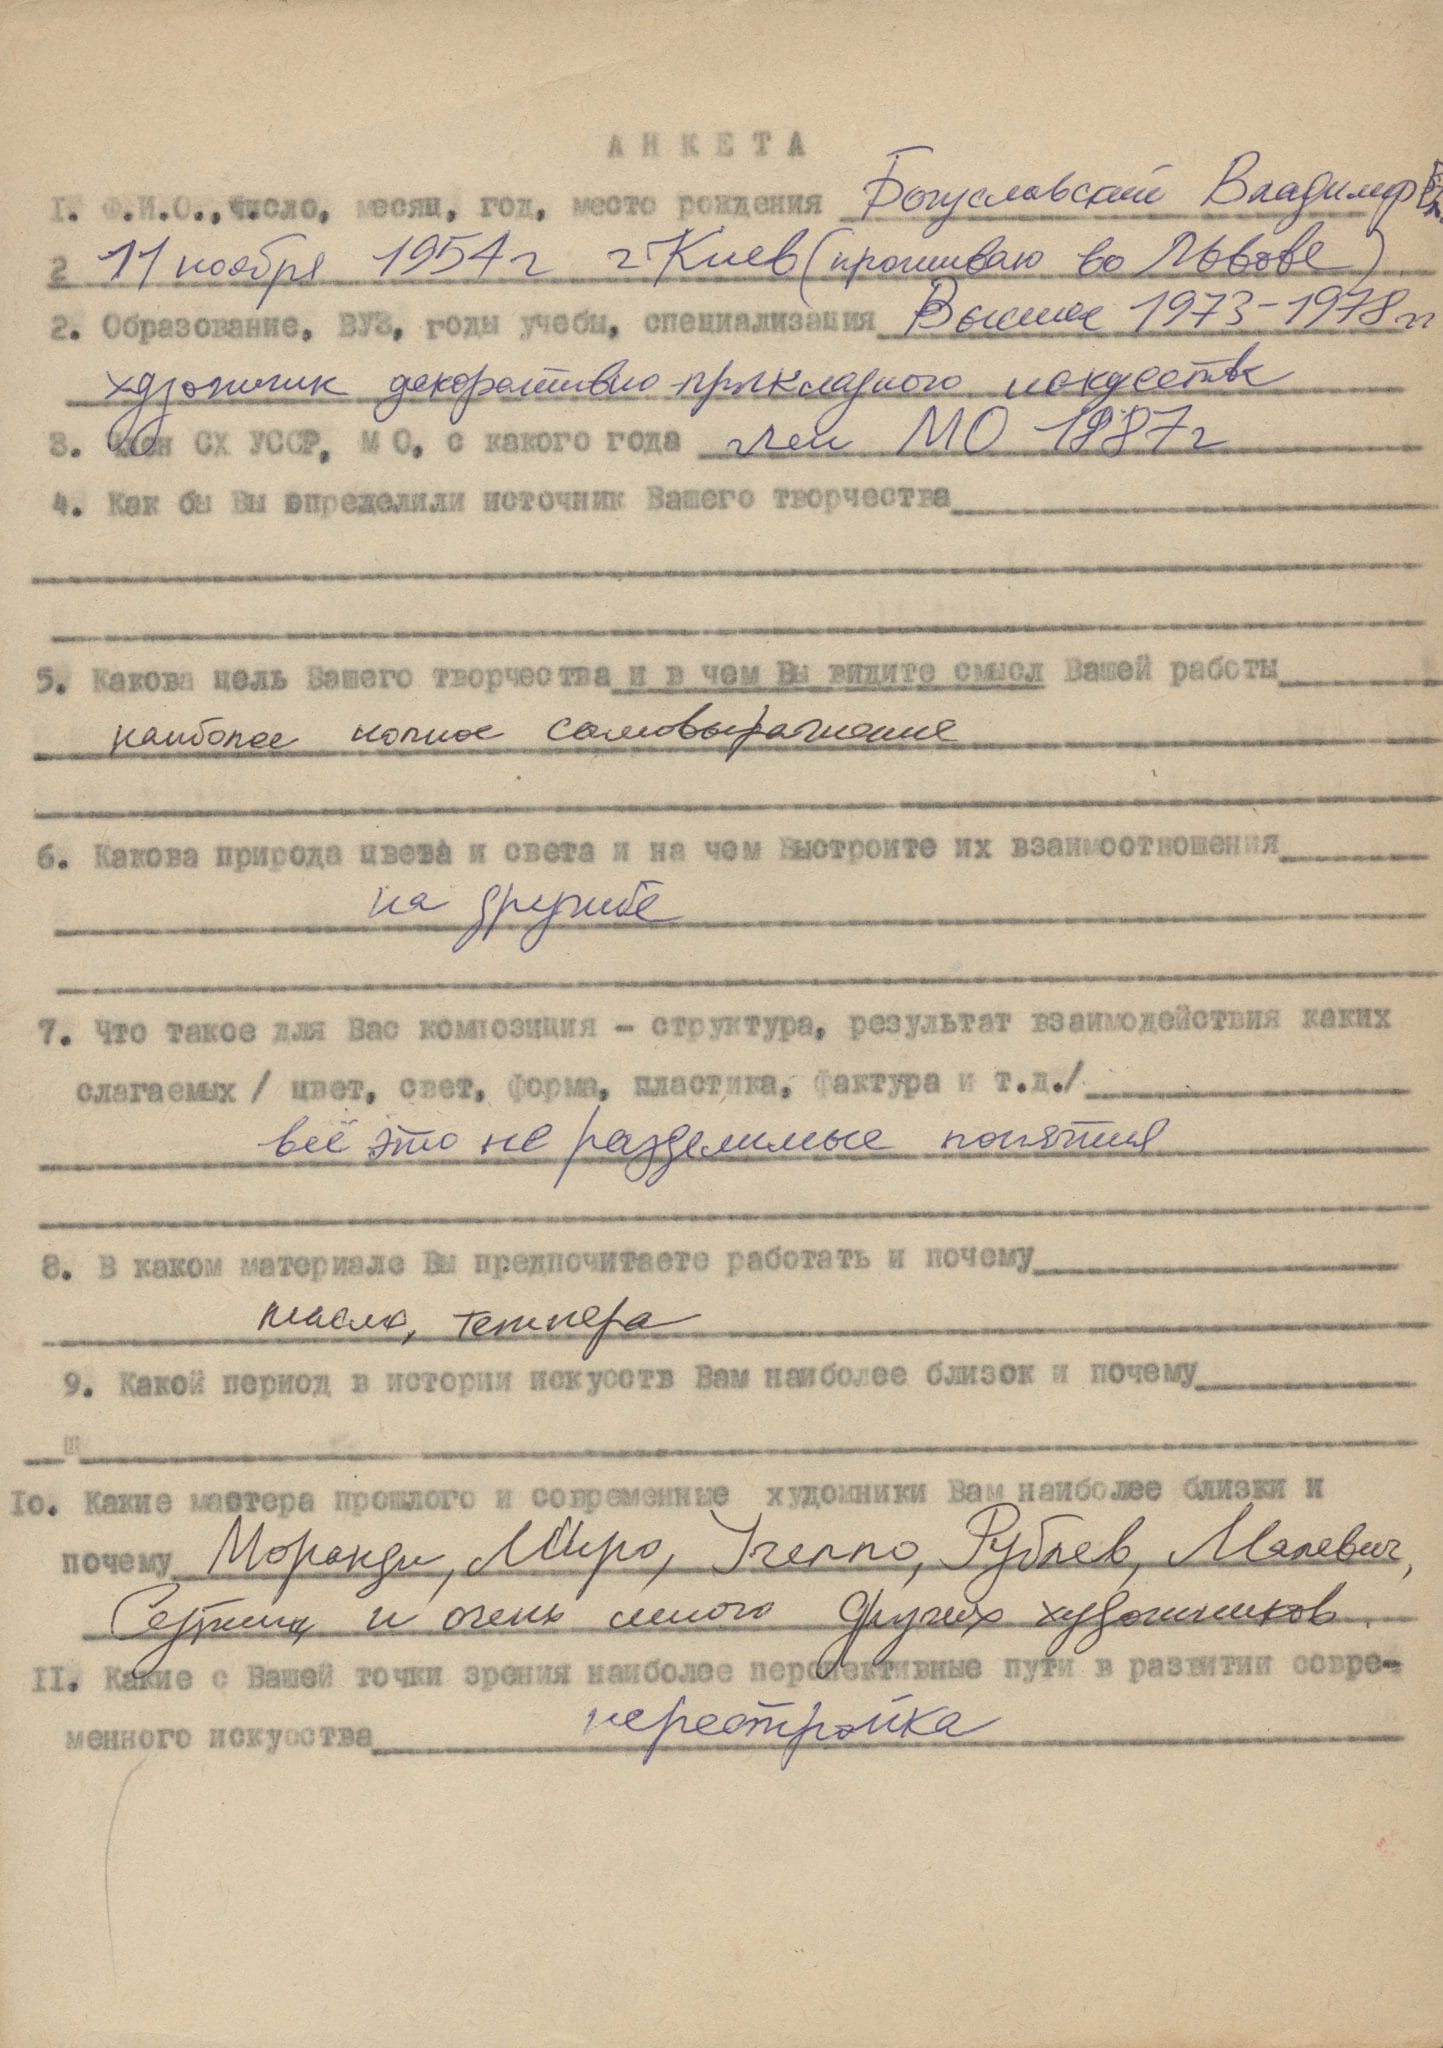 АНКЕТА
1. Ф.И.О., число, месяц, год, место рождения Богуславский Владимир
2 11 ноября 1954 г г Киев (проживаю во Львове)
2. Образование, ВУЗ, годы учебы, специализация Высшее 1973-1978 гг
художник декоративно-прикладного искусства
3. член СХ УССР, М О, с какого года член МО 1987 г
4. Как бы Вы определили источник Вашего творчества
5. Какова цель Вашего творчества и в чем Вы видите смысл Вашей работы
наиболее полное самовыражение
6. Какова природа цвета и света и на чем Выстроите их взаимоотношения
на дружбе
7. Что такое для Вас композиция - структура, результат взаимодействия каких
слагаемых / цвет, свет, форма, пластика, фактура и т.д./
всё это не разделимые понятия
8. В каком материале Вы предпочитаете работать и почему
масло, темпера
9. Какой период в истории искусств Вам наиболее близок и почему
Iо. Какие мастера прошлого и современные художники Вам наиболее близки и
почему Моранди, Миро, Учелло, Рублев, Малевич,
и очень много других художников.
II. Какие с Вашей точки зрения наиболее перспективные пути в развитии совре-
менного искусства перестройка